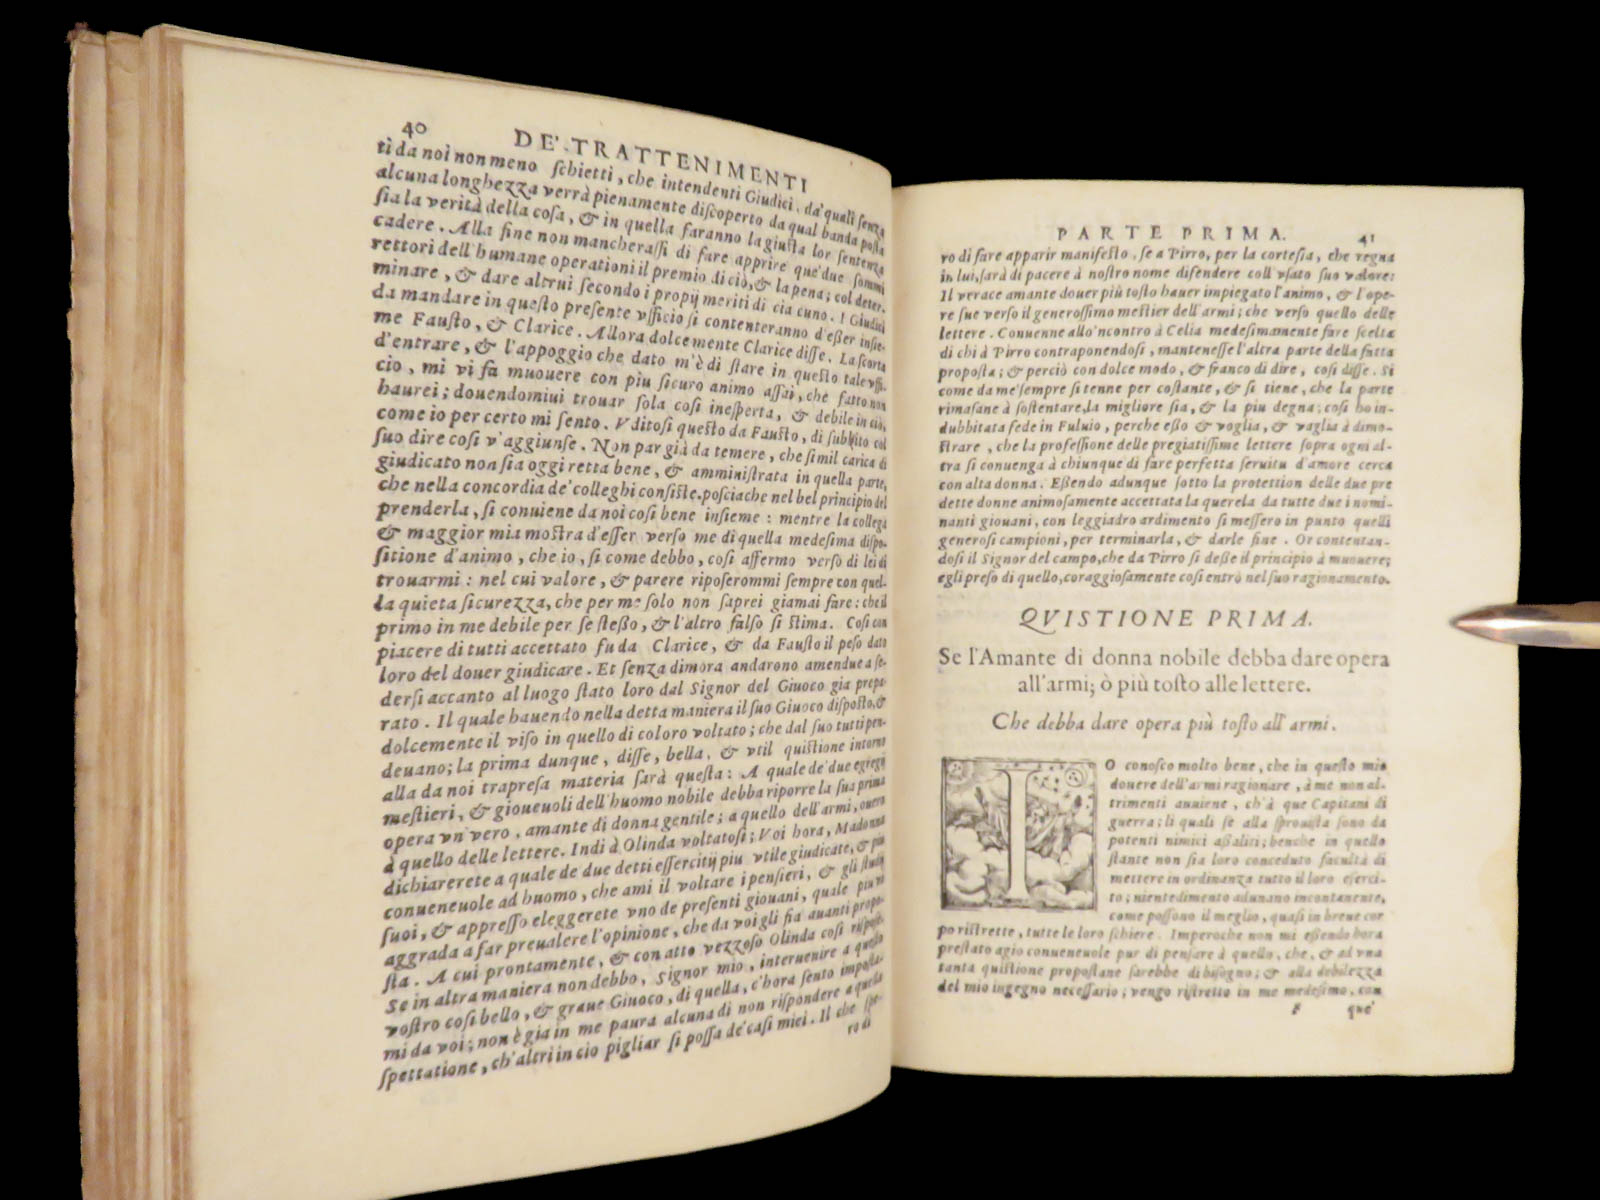 40
DE'. TRATTENIMENTI
ti da noi non meno ſchietti, che intendenti Giudici. da' quali ſenza
alcuna longhezza verrà pienamente diſcoperto da qual banda poſta
ſia la verità della coſa, & in quella faranno la giuſta lor ſentenza
cadere. Alla fine non mancheraſſi di fare apprire que' due ſommi
rettori dell'humane operationi il premio di ciò, & la pena; col deter-
minare, & dare altrui ſecondo i proprij meriti di cia cuno. I Giudici
da mandare in queſto preſente vfficio ſi contenteranno d'eßer inſie-
me Fauſto, & Clarice. Allora dolcemente Clarice diſſe. La ſcorta
d'entrare, & l'appoggio che dato m'è di ſtare in queſto tale vffi-
cio, mi vi fa muouere con più ſicuro animo aſſai, che fatto non
haurei; douendomiui trouar ſola coſi ineſperta, & debile in ciò,
come io per certo mi ſento. Vditoſi queſto da Fauſto, di ſubbito col
ſuo dire coſi v'aggiunſe. Non par già da temere, che ſimil carica di
giudicato non ſia oggi retta bene, & amminiſtrata in quella parte,
che nella concordia de' colleghi conſiſte. poſciache nel bel principio del
prenderla, ſi conuiene da noi coſi bene inſieme: mentre la collega
& maggior mia moſtra d'eſſer verſo me di quella medeſima diſpo-
ſitione d'animo, che io, ſi come debbo, coſi affermo verſo di lei di
trouarmi: nel cui valore, & parere ripoſerommi ſempre con quel-
la quieta ſicurezza, che per me ſolo non ſaprei giamai fare: che il
primo in me debile per ſe ſteßo, & l'altro falſo ſi ſtima. Coſi con
piacere di tutti accettato fu da Clarice, & da Fauſto il peſo dato
loro del douer giudicare. Et ſenza dimora andarono amendue a ſe-
derſi accanto al luogo ſtato loro dal Signor del Giuoco gia prepa-
rato. Il quale hauendo nella detta maniera il ſuo Giuoco diſpoſto, &
dolcemente il viſo in quello di coloro voltato; che dal ſuo tutti pen-
deuano; la prima dunque, diſſe, bella, & vtil quiſtione intorno
alla da noi trapreſa materia ſarà queſta: A quale de' due egregij
meſtieri, & gioueuoli dell'huomo nobile debba riporre la ſua prima
opera vn vero. amante di donna gentile; a quello dell'armi, ouero
à quello delle lettere. Indi à Olinda voltatoſi; Voi hora, Madonna
dichiarerete a quale de due detti eſſercitij piu vtile giudicate, & più
conueneuole ad huomo, che ami il voltare i penſieri, & gli ſtudij
ſuoi, & appreſſo eleggerete vno de preſenti giouani, quale piu vi
aggrada a far preualere l'opinione, che da voi gli fia auanti propo-
ſta. A cui prontamente, & con atto vezzoſo Olinda coſi riſpoſe.
Se in altra maniera non debbo, Signor mio, interuenire a queſto
voſtro coſi bello, & graue Giuoco, di quella, c'hora ſento impoſta-
mi da voi; non è gia in me paura alcuna di non riſpondere a quella
ſpettatione, ch'altri in cio pigliar ſi poſſa de' caſi miei. Il che ſpe-
ro di
PARTE PRIMA.
41
ro di fare apparir manifeſto, ſe a Pirro, per la corteſia, che regna
in lui, ſarà di pacere à noſtro nome difendere coll vſato ſuo valore:
Il verace amante douer più toſto hauer impiegato l'animo, & l'ope-
re ſue verſo il generoſſimo meſtier dell'armi; che verſo quello delle
lettere. Conuenne allo'ncontro à Celia medeſimamente fare ſcelta
di chi à Pirro contraponendoſi, manteneſſe l'altra parte della fatta
propoſta; & perciò con dolce modo, & franco di dire, coſi diſſe. Si
come da me ſempre ſi tenne per coſtante, & ſi tiene, che la parte
rimaſane à ſoſtentare, la migliore ſia, & la piu degna; coſi ho in-
dubbitata fede in Fuluio, perche eßo & voglia, & vaglia à dimo-
ſtrare, che la profeſſione delle pregiatiſſime lettere ſopra ogni al-
tra ſi conuenga à chiunque di fare perfetta ſeruitu d'amore cerca
con alta donna. Eßendo adunque ſotto la protettion delle due pre
dette donne animoſamente accettata la querela da tutte due i nomi-
nanti giouani, con leggiadro ardimento ſi meſſero in punto quelli
generoſi campioni, per terminarla, & darle fine. Or contentan-
doſi il Signor del campo, che da Pirro ſi deße il principio à muouere;
egli preſo di quello, coraggioſamente coſi entrò nel ſuo ragionamento.
QVISTIONE PRIMA.
Se l'Amante di donna nobile debba dare opera
all'armi; ò più toſto alle lettere.
Che debba dare opera più toſto all'armi.
IO conoſco molto bene, che in queſto mio
douere dell'armi ragionare, à me non al-
trimenti auuiene, ch'à que Capitani di
guerra; li quali ſe alla ſprouiſta ſono da
potenti nimici aßaliti; benche in quello
ſtante non ſia loro conceduto facultà di
mettere in ordinanza tutto il loro eſerci-
to; nientedimento adunano incontanente,
come poſſono il meglio, quaſi in breue cor
po riſtrette, tutte le loro ſchiere. Imperoche non mi eßendo hora
preſtato agio conueneuole pur di penſare à quello, che, & ad vna
tanta quiſtione propoſtane ſarebbe di biſogno; & alla debilezza
del mio ingegno neceſſario; vengo riſtretto in me medeſimo, con
F
que'